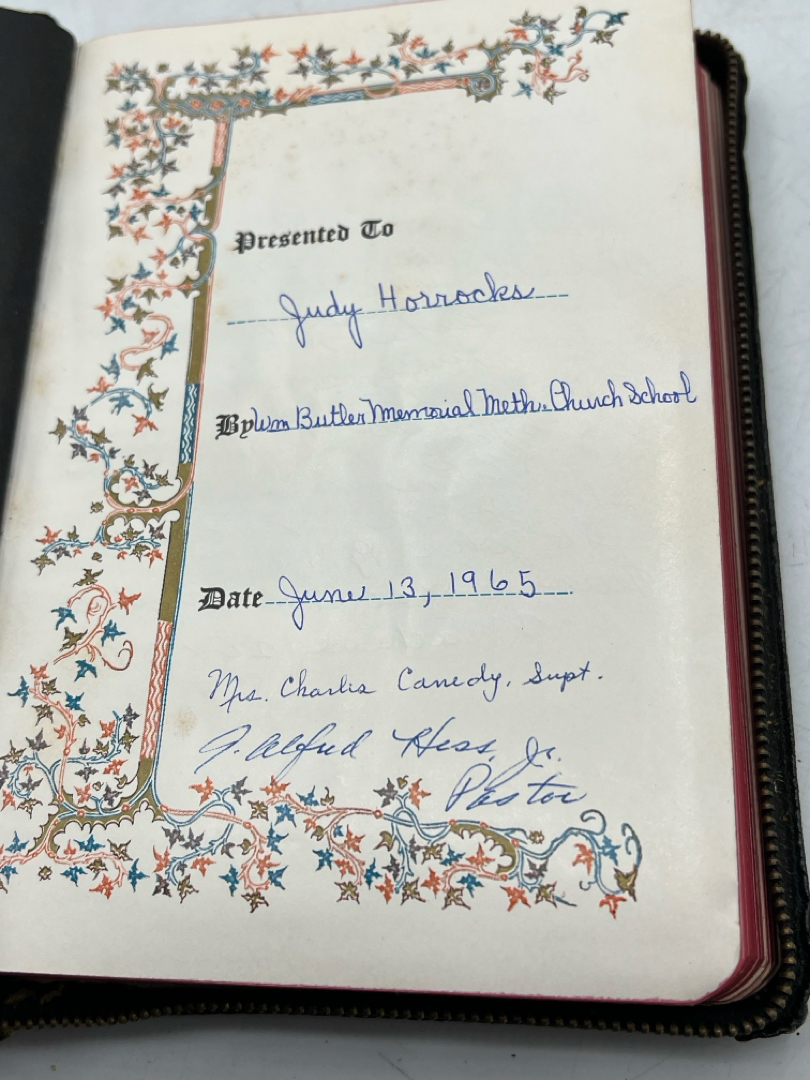 Presented To
Judy Horrocks
By Wm Butler Memorial Meth. Church School
Date June 13, 1965
Mrs. Charlis Canedy, Supt.
J. Alfred Hess, Jr.
Pastor